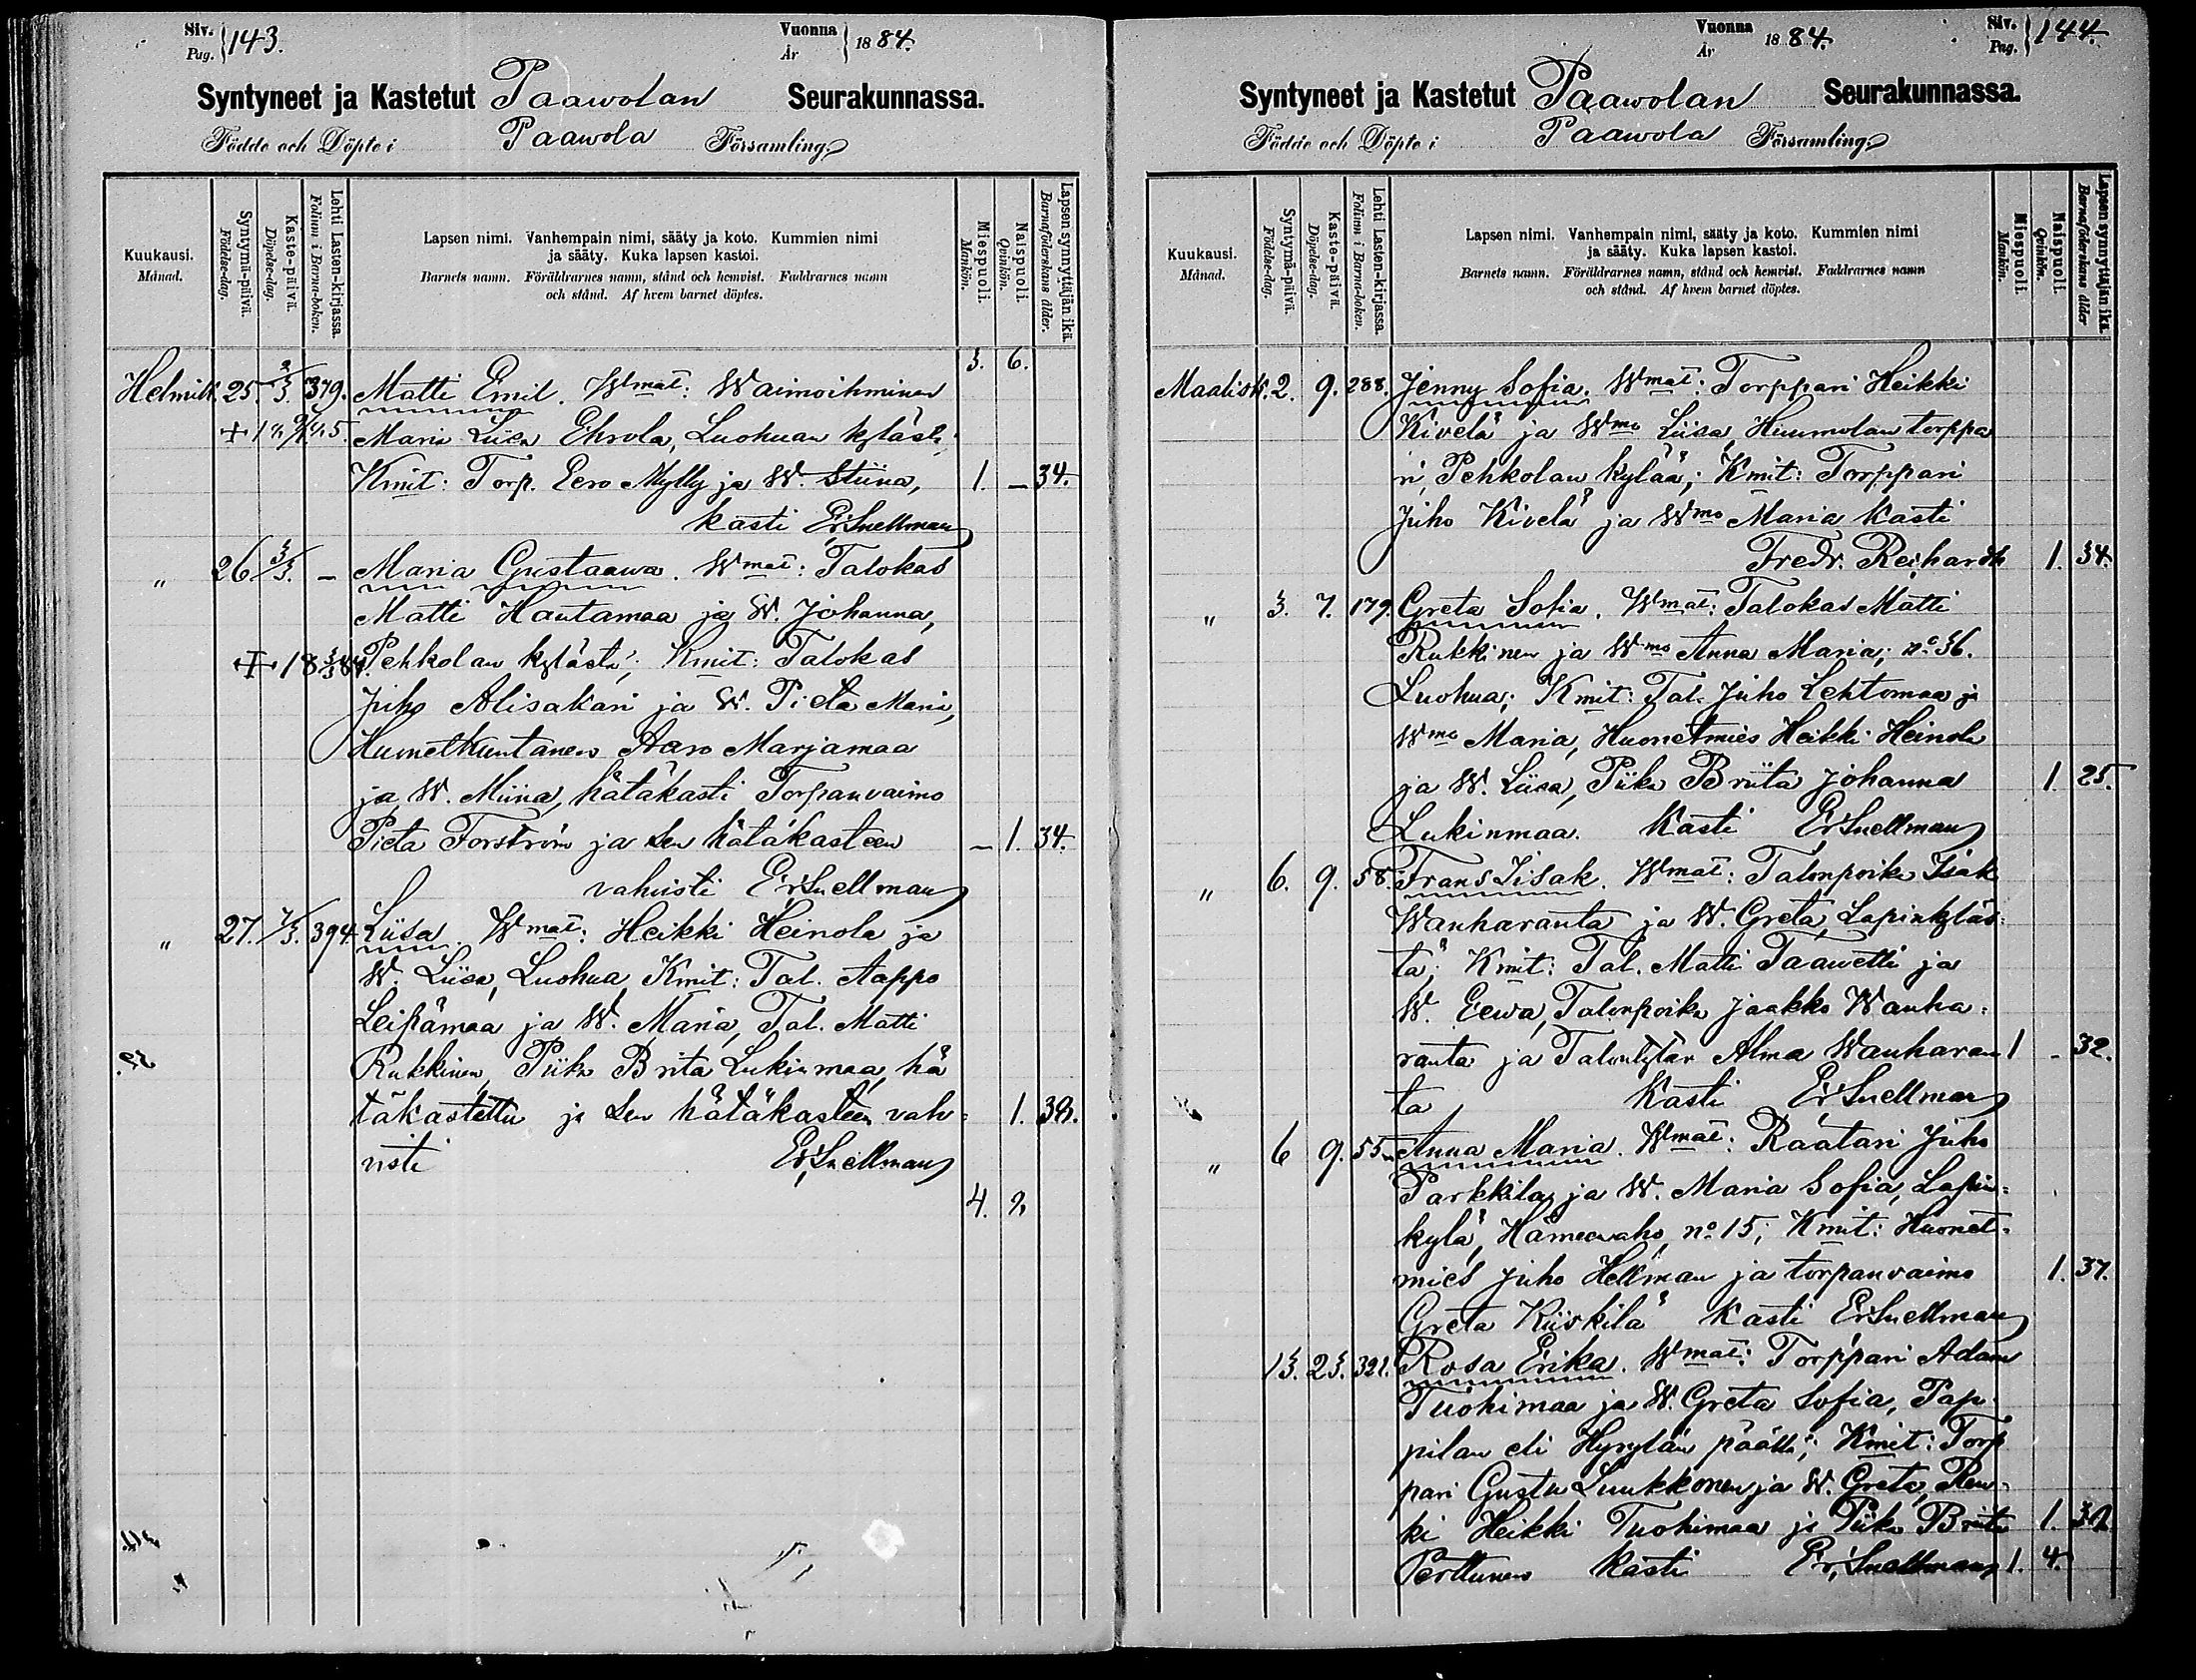 Siv. Pag. 143.
Vuonna År 1884.
Syntyneet ja Kastetut Paawolan Seurakunnassa.
Födde och Döpte i Paawola Församling.
Kuukausi. Månad.
Syntymä-päivä. Födelse-dag.
Kaste-päivä. Döpelse-dag.
Lehti Lasten-kirjassa. Folium i Barna-boken.
Lapsen nimi. Vanhempain nimi, sääty ja koto. Kummien nimi
ja sääty. Kuka lapsen kastoi.
Barnets namn. Föräldrarnes namn, stånd och hemvist. Faddrarnes namn
och stånd. Af hvem barnet döptes.
Miespuoli. Mankön.
Naispuoli. Qvinkön.
Lapsen synnyttäjän ikä. Barnaföderskans ålder.
3. 6.
Helmik. 25. 2/3. 379. Matti Emil. Wmat: Waimoihminen
Maria Liisa Ehrola, Luohuan kylästä;
Kmit: Torp. Eero Mylly ja W. Stiina, 1. — 34.
kasti Er. Snellman
" 26 3/3. — Maria Gustaawa. Wmat: Talokas
Matti Hautamaa ja W. Johanna,
Pehkolan kylästä; Kmit: Talokas
Juho Alisakari ja W. Pieta Maria,
Huonetkuntanen Aaro Marjamaa
ja W. Miina, hätäkasti Torpanvaimo
Pieta Forström ja sen hätäkasteen — 1. 34.
vahvisti Er Snellman
" 27. 7/3. 394. Liisa. Wmat: Heikki Heinola ja
W. Liisa, Luohua, Kmit: Tal. Aappo
Leipämaa ja W. Maria, Tal. Matti
Rukkinen, Piika Brita Lukinmaa, hä
täkastettu ja sen hätäkasteen vah= 1.
visti Er. Snellman
4. 2
Vuonna År 1884.
Siv. Pag. 144.
Syntyneet ja Kastetut Paawolan Seurakunnassa.
Födde och Döpte i Paawola Församling.
Kuukausi. Månad.
Syntymä-päivä. Födelse-dag.
Kaste-päivä. Döpelse-dag.
Lehti Lasten-kirjassa. Folium i Barna-boken.
Lapsen nimi. Vanhempain nimi, sääty ja koto. Kummien nimi
ja sääty. Kuka lapsen kastoi.
Barnets namn. Föräldrarnes namn, stånd och hemvist. Faddrarnes namn
och stånd. Af hvem barnet döptes.
Miespuoli. Mankön.
Naispuoli. Qvinkön.
Lapsen synnyttäjän ikä. Barnaföderskans ålder
Maalisk. 2. 9. 288. Jenny Sofia. Wmat: Torppari Heikki
Kivelä ja Wmo Liisa, Huumolan torppa
ri, Pehkolan kylää; Kmit: Torppari
Juho Kivelä ja Wmo Maria kasti
Fredr. Reihardt 1. 34.
" 3. 7. 179. Greta Sofia. Wmat: Talokas Matti
Rukkinen ja Wmo Anna Maria; no 36.
Luohua; Kmit: Tal. Juho Lehtomaa ja
Wmo Maria, Huonetmies Heikki Heinola
ja W. Liisa, Piika Briita Johanna 1. 25.
Lukinmaa. Kasti Er Snellman
" 6. 9. 58. Frans Iisak. Wmat: Talonpoika Isak
Wanharanta ja W. Greta, Lapinkyläs=
tä; Kmit: Tal. Matti Taawetti ja
W. Eewa, Talonpoika Jaakko Wanha=
ranta ja Talontytär Alma Wanharan 1 - 32.
ta Kasti Er Snellman
" 6 9. 55. Anna Maria. Wmat: Räätäri Juho
Parkkila ja W. Maria Sofia, Lapin=
kylä, Hämeenaho, no 15; Kmit: Huonet=
mies Juho Hellman ja torpanvaimo 1. 37.
Greta Kiiskilä Kasti Er Snellman
13. 23. 321. Rosa Erika. Wmat: Torppari Adam
Tuohimaa ja W. Greta Sofia, Pap=
pilan eli Hyrylän päällä; Kmit: Torp
pari Gustu Luukkonen ja W. Greta, Ren=
ki Heikki Tuohimaa ja Piika Briita 1.
Perttunen Kasti Er. Snellman 1. 4.